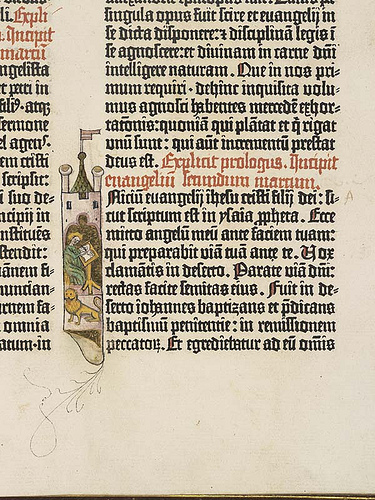 li. Expli
Incipit
marcū
angelista
et petri in
filiꝰ· atq̃
sermone
el agens.
em cristi
scripsit
suo de-
ncipij in
nstituēs
stendit:
anem fi-
nuncian-
rnem fa-
omnia
atum·in
singula opus fuit scire et euangelij in
se dicta disponere: ⁊ disciplinā legis ī
se agnoscere: et divinam in carne dn̄i
intelligere naturam. Que in nos pri-
mum requiri · dehinc inquisita volu-
mus agnosci habentes mercedē exhor-
tatōnis: quoniā qui plātat et q̇ rigat
vnū sunt: qui aūt incrementū prestat
deus est. Explicit prologus. Incipit
euangeliū secundum marcum.
Niciū euangelij ihesu cristi filij dei: si-
cut scriptum est in ysaia ꝓpheta. Ecce
mitto angelū meū ante faciem tuam:
qui preparabit viā tuā ante te. Vox
clamātis in deserto. Parate viā dn̄i:
rectas facite semitas eius. Fuit in de-
serto iohannes baptizans et p̄dicans
baptismū penitentie: in remissionem
peccatoꝝ. Et egrediebatur ad eū om̄is